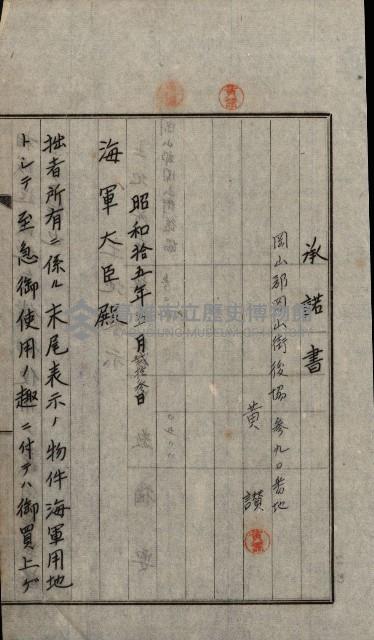 承諾書
岡山郡岡山街後協參九〇番地
黃讃
昭和拾五年 月 日
海軍大臣殿
拙者所有ニ係ル末尾表示ノ物件海軍用地
トシテ至急御使用ノ趣ニ付テハ御買上ゲ
高雄市立歷史博物館
KAOHSIUNG MUSEUM OF HISTORY